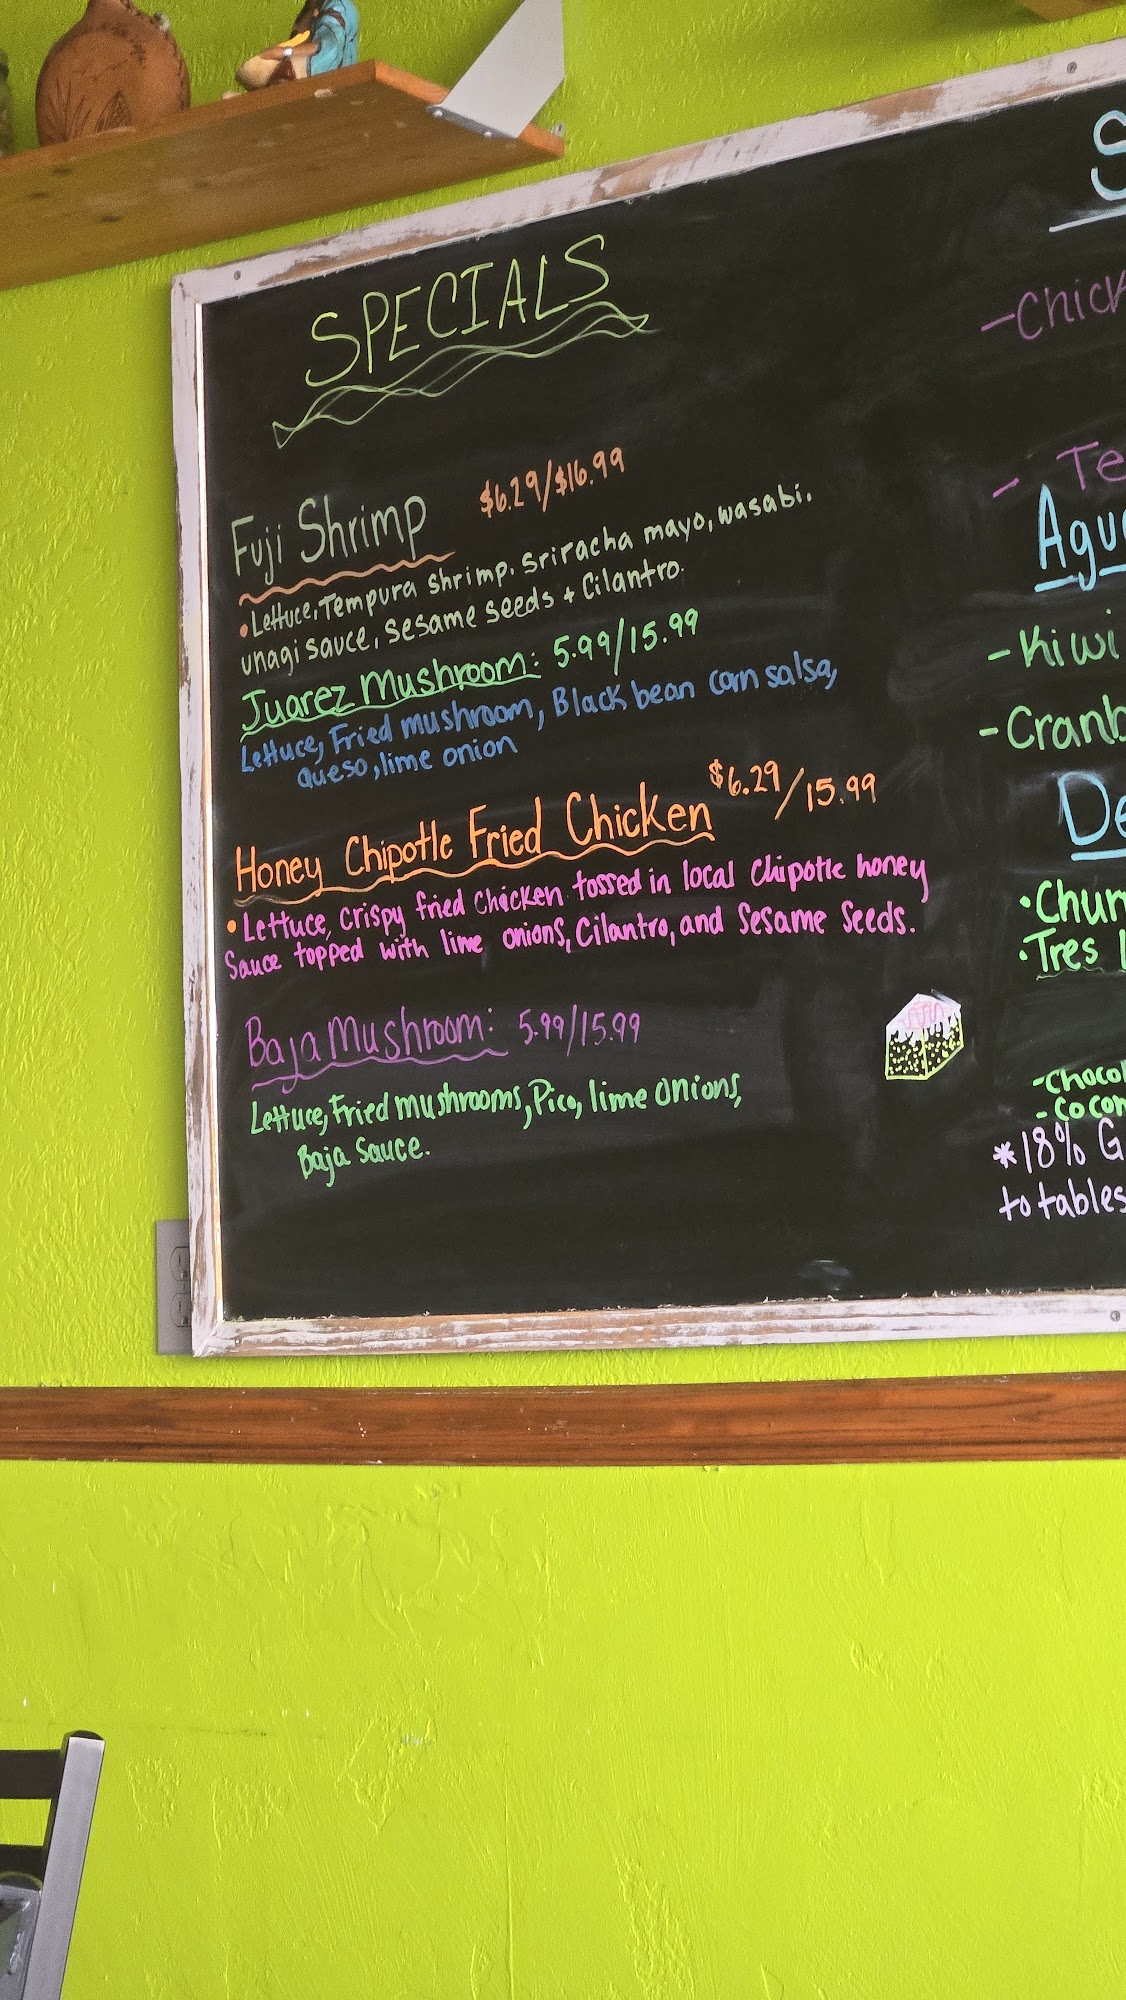 SPECIALS
Fuji Shrimp $6.29/$16.99
• Lettuce, Tempura shrimp, sriracha mayo, wasabi.
unagi sauce, sesame seeds + Cilantro.
Juarez Mushroom: 5.99/15.99
Lettuce, Fried mushroom, Black bean corn salsa,
queso, lime onion
Honey Chipotle Fried Chicken $6.29/15.99
• Lettuce, crispy fried Chicken tossed in local Chipotle honey
Sauce topped with lime onions, Cilantro, and Sesame Seeds.
Baja Mushroom: 5.99/15.99
Lettuce, Fried mushrooms, Pico, lime onions,
Baja Sauce.
S
- Chick
- Te
Agu
- Kiwi
- Cranb
De
• Chur
• Tres
- Chocol
- Cocon
*18% G
to tables